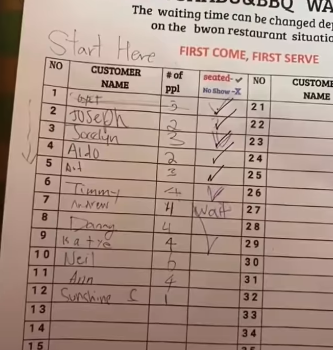 &BBQ WA
The waiting time can be changed de
on the bwon restaurant situatio
Start Here FIRST COME, FIRST SERVE
NO CUSTOMER NAME # of ppl seated-✓ No Show-X NO CUSTOME NAME
1 3 ✓ 21
2 Joseph 2 ✓ 22
3 Jocelyn 3 ✓ 23
4 Aldo 2 ✓ 24
5 3 ✓ 25
6 Timmy 4 ✓ 26
7 4 Wait 27
8 Danny 4 28
9 Katya 4 29
10 Neil 6 30
11 Ann 4 31
12 Sunshine S 1 32
13 33
14 34
15 35